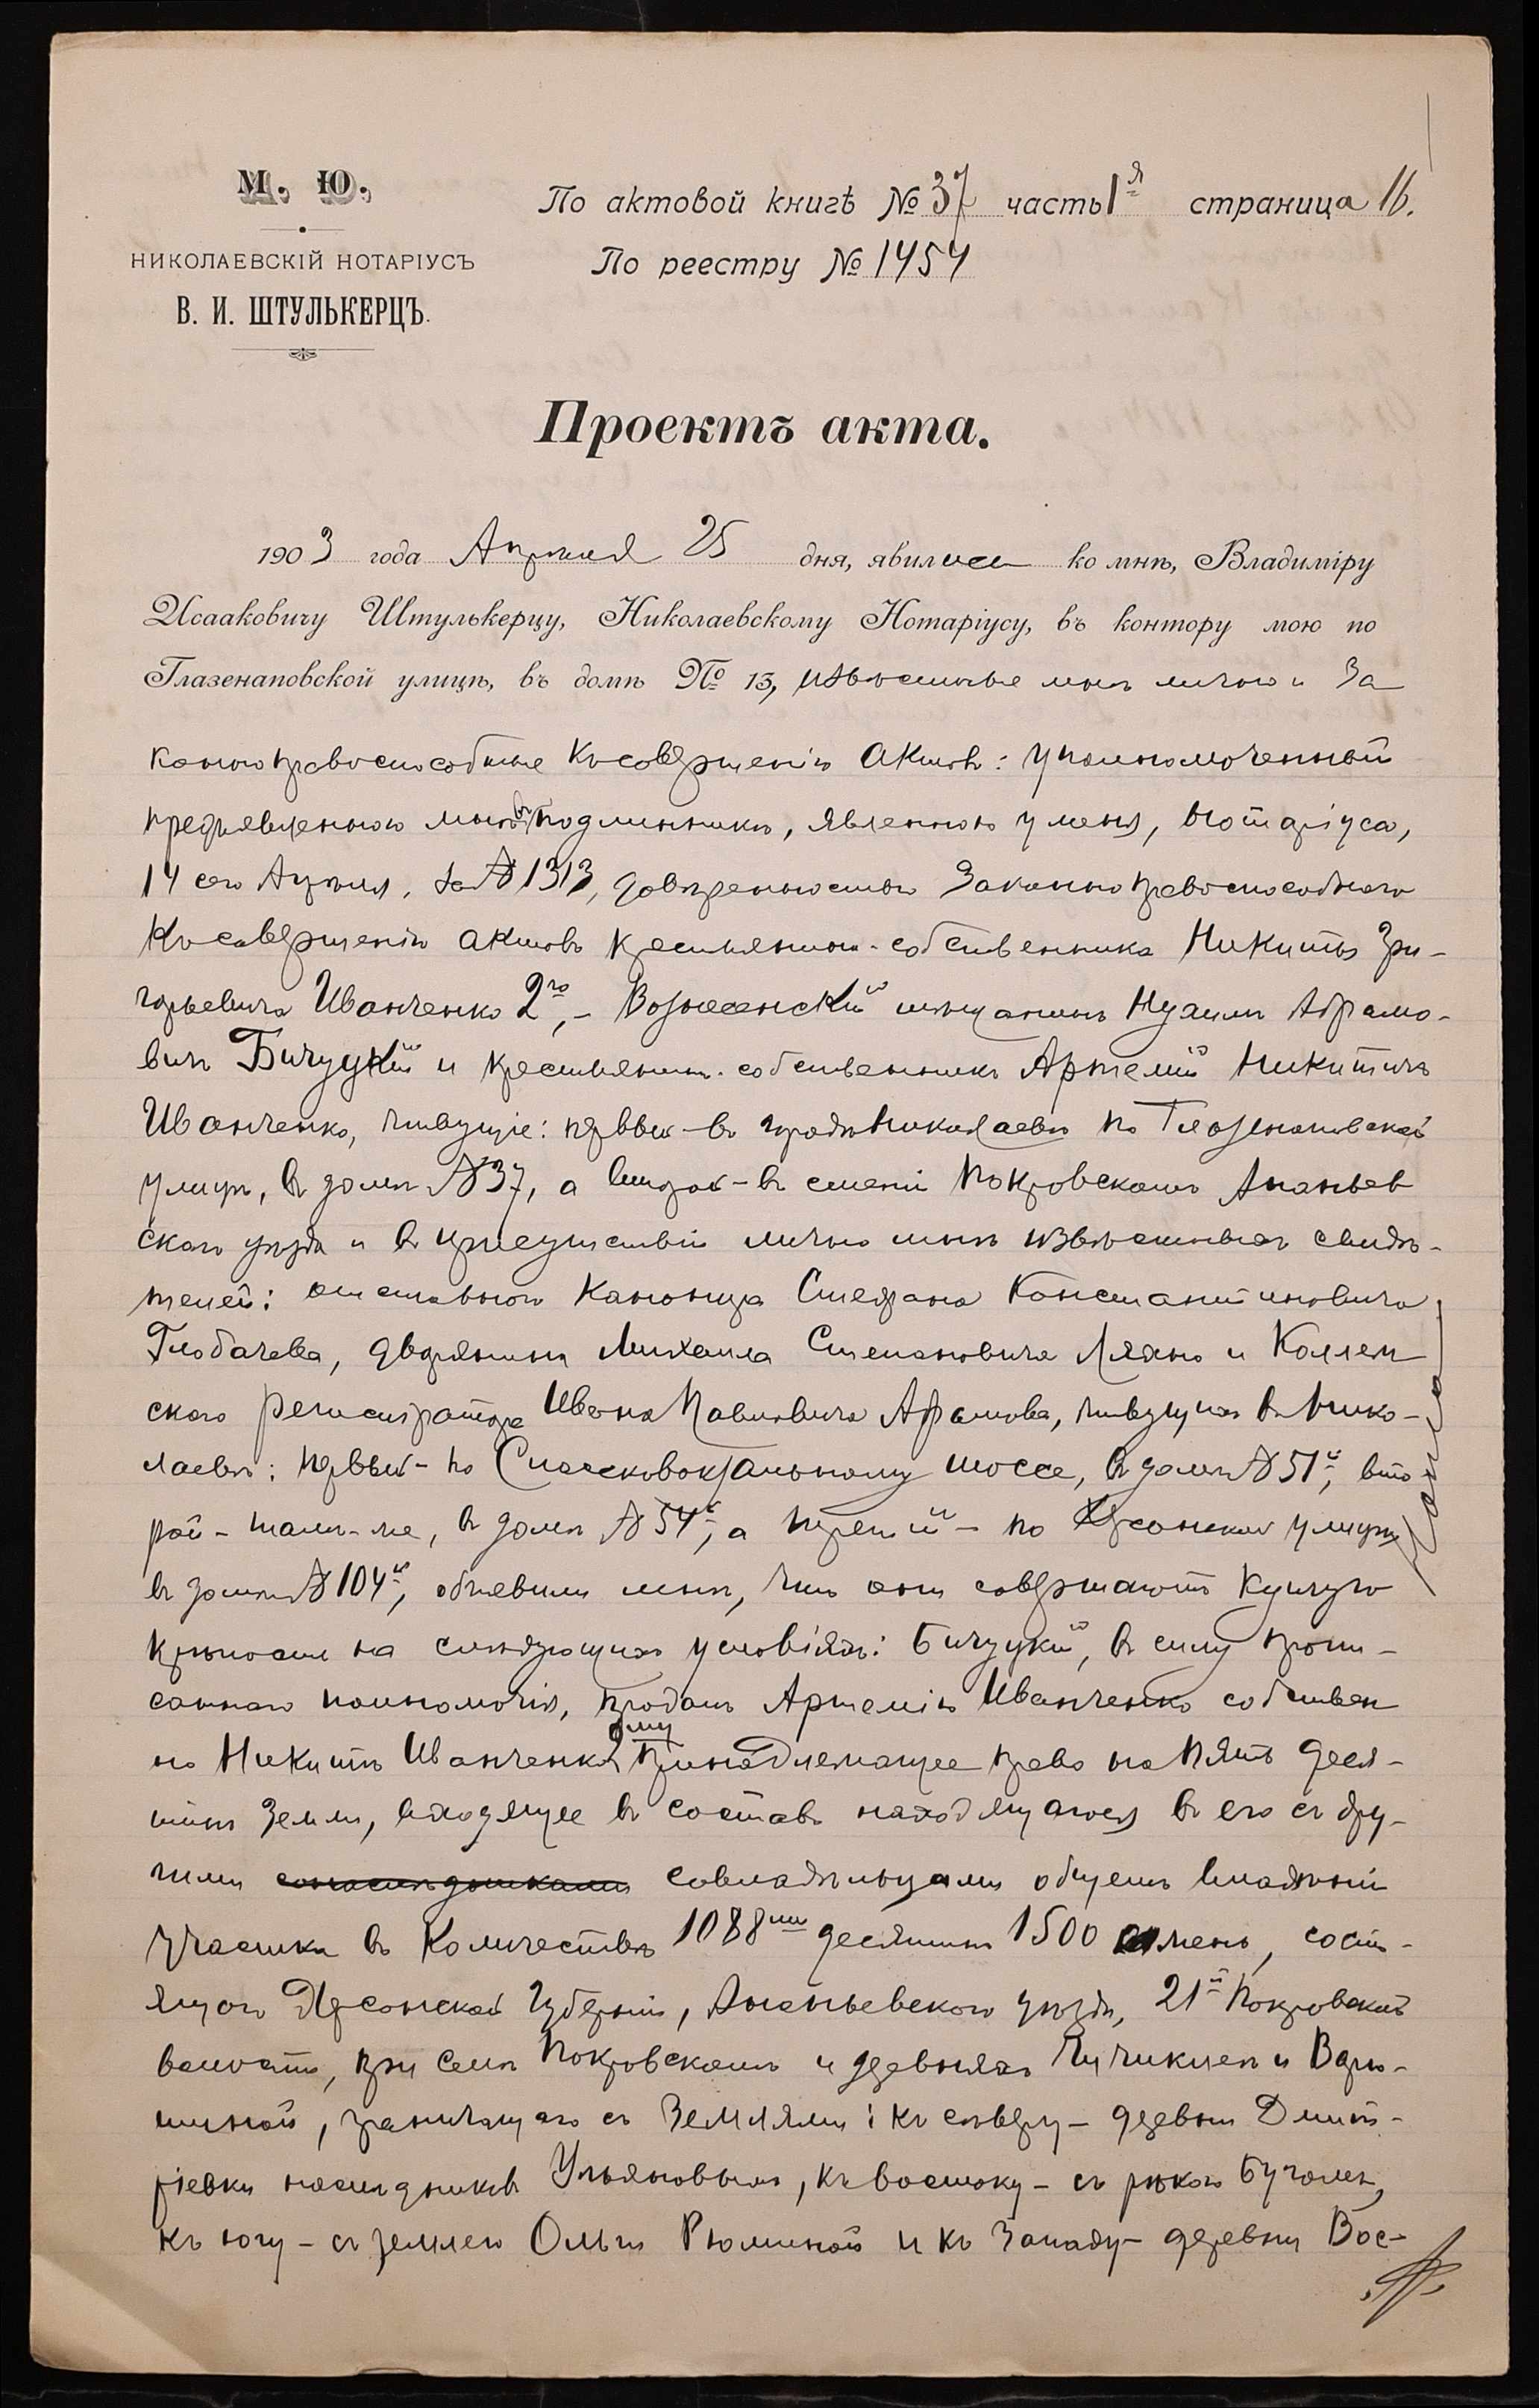 М. Ю.
НИКОЛАЕВСКІЙ НОТАРІУСЪ
В. И. ШТУЛЬКЕРЦЪ.
По актовой книгѣ № 37 часть 1я страница 16.
По реестру № 1454
Проектъ акта.
1903 года Апрѣля 25 дня, явились ко мнѣ, Владиміру
Исааковичу Штулькерцу, Николаевскому Нотаріусу, въ контору мою по
Глазенаповской улицѣ, въ домѣ № 13, извѣстные мнѣ лично и за
конно правоспособные къ совершенію актовъ: уполномоченный
предъявленною мнѣ въ подлинникѣ, явленною у меня, Нотаріуса,
14 сего Апрѣля, за № 1313, довѣренностью законно правоспособнаго
къ совершенію актовъ крестьянина-собственника Никиты Гри-
горьевича Иванченко 2го, - Вознесенскій мѣщанинъ Нухимъ Абрамо-
вичъ Бичуцкій и крестьянинъ-собственникъ Артемій Никитичъ
Иванченко, живущіе: первый - въ городѣ Николаевѣ по Глазенаповской
улицѣ, въ домѣ № 37, а второй - въ селеніи Покровскомъ Ананьев
скаго уѣзда и въ присутствіи лично мнѣ извѣстныхъ свидѣ-
телей: отставного канонира Стефана Константиновича
Глобачева, дворянина Михаила Степановича Ляхно и Коллеж
скаго регистратора Ивана Павловича Абрамова, живущихъ въ Нико-
лаевѣ: первый - по Спасскому шоссе, въ домѣ № 51й, вто
рой - тамъ-же, въ домѣ № 54й, а третій - по Херсонской улицѣ
въ домѣ № 104й, объявили мнѣ, что они совершаютъ купчую
крѣпость на слѣдующихъ условіяхъ: Бичуцкій, въ силу пропи-
саннаго полномочія, продалъ Артемію Иванченко собствен
но Никитѣ Иванченко 2му принадлежащее право на пять деся-
тинъ земли, входящее въ составъ находящагося въ его съ дру-
гими совладѣльцами общемъ владѣніи
участка въ количествѣ 1088ми десятинъ 1500 сажень, состо-
ящаго Херсонской губерніи, Ананьевскаго уѣзда, 21й Покровской
волости, при селѣ Покровскомъ и деревняхъ Чичиклеѣ и Варю-
шиной, граничащаго съ землями: къ сѣверу - деревни Дмит-
ріевки наслѣдниковъ Ульяновыхъ, къ востоку - съ рѣкою Бугомъ,
къ югу - съ землею Ольги Рюминой и къ западу - деревни Вос-